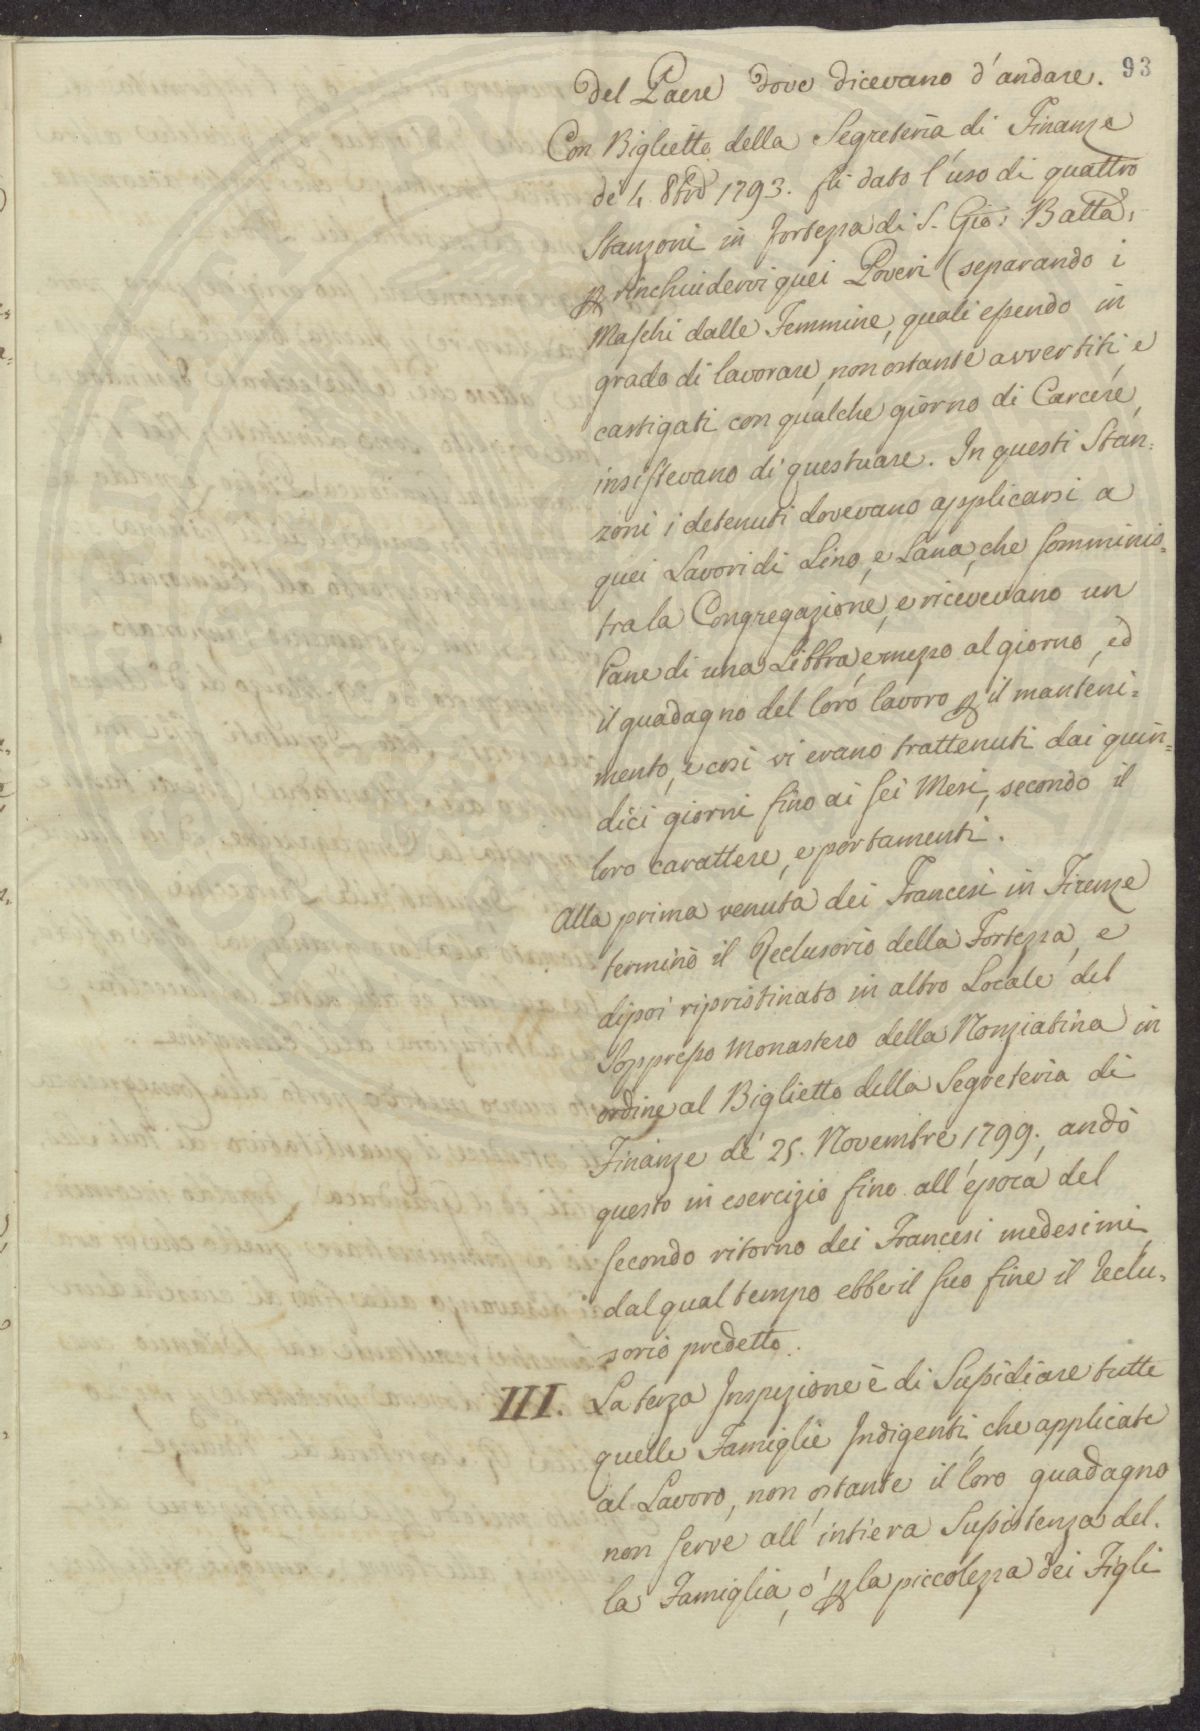 93
del Paese dove dicevano d'andare.
Con Biglietto della Segreteria di Finanze
de' 4. 8bre 1793. fù dato l'uso di quattro
Stanzoni in fortezza di S. Gio: Batta,
per rinchiudervi quei Poveri (separando i
Maschi dalle Femmine, quali essendo in
grado di lavorare, non ostante avvertiti, e
castigati con qualche giorno di Carcere,
insistevano di questuare. In questi Stan:
zoni i detenuti dovevano applicarsi a
quei Lavori di Lino, e Lana, che somminis:
tra la Congregazione, e ricevevano un
Pane di una Libbra, e mezzo al giorno, ed
il guadagno del loro lavoro per il manteni:
mento, e così vi erano trattenuti dai quin:
dici giorni fino ai sei Mesi, secondo il
loro carattere, e portamenti.
Alla prima venuta dei Francesi in Firenze
terminò il Reclusorio della Fortezza, e
dipoi ripristinato in altro Locale del
Soppresso Monastero della Nonziatina in
ordine al Biglietto della Segreteria di
Finanze de' 25. Novembre 1799; andò
questo in esercizio fino all'epoca del
secondo ritorno dei Francesi medesimi,
dal qual tempo ebbe il suo fine il Reclu:
sorio predetto.
III. La terza Inspezione è di Sussidiare tutte
quelle Famiglie Indigenti, che applicate
al Lavoro, non ostante il loro guadagno
non serve all'intiera Sussistenza del:
la Famiglia, ò per la piccolezza dei Figli